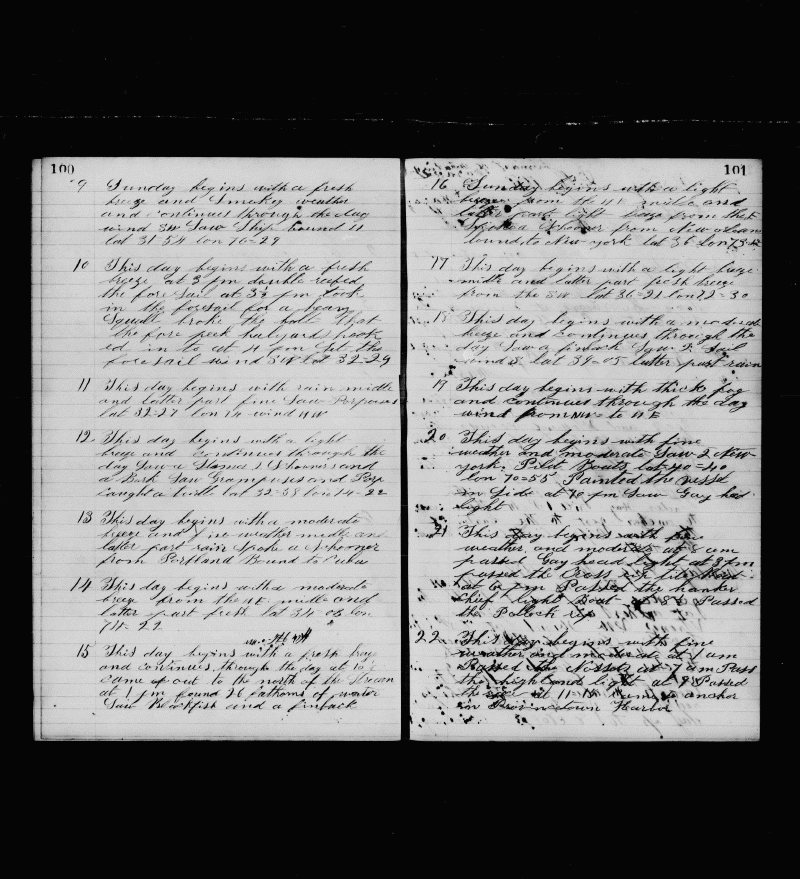 100
9 Sunday begins with a fresh
breeze and Smokey weather
and continues through the day
wind SW Saw Ship bound N
lat 31-54 lon 76-29
10 This day begins with a fresh
breeze at 3 pm double reefed
the fore sail at 3½ pm took
in the foresail for a heavy
Squall broke the bolt that
the fore peek halyards hooks
in to at 4 pm Set the
foresail wind SW lat 32-29
11 This day begins with rain middle
and latter part fine Saw Porpoises
lat 32-27 lon 74 wind NW
12 This day begins with a light
breeze and continues through the
day Saw a Steamer 2 Schooners and
a Bark Saw Grampuses and
caught a turtle lat 32-58 lon 74-22
13 This day begins with a moderate
breeze and fine weather middle and
latter part rain Spoke a Schooner
from Portland Bound to Cuba
14 This day begins with a moderate
breeze from the NE middle and
latter part fresh lat 34-03 lon
74-22
15 This day begins with a fresh breeze
and continues through the day at
came out to the north of the Stream
at 1 pm found 26 fathoms of water
Saw Blackfish and a finback
101
16 Sunday begins with a light
breeze from the middle and
latter part light breeze from the
Spoke a Schooner from New orleans
bound to New york lat 36 lon 73
17 This day begins with a light breeze
midle and latter part fresh breeze
from the SW lat 36-21 lon 72-30
18 This day begins with a moderate
breeze and continues through the
day Saw
wind S lat 39-05 latter part rain
19 This day begins with thick fog
and continues through the day
wind from NW to NE
20 This day begins with fine
weather and moderate Saw 2 New
york Pilot Boats lat 40-40
lon 70-55 Painted the
in Side at 10 pm Saw Gay head
light
21 This day begins with fine
weather and moderate at 8 am
passed Gay head light at 3 pm
passed the Cross rip lite boat
at 6 pm Passed the hanker
Chief light Boat at Passed
the Pollock rip
22 This day begins with fine
weather and moderate at 1 am
Passed the at 7 am Pass
the highland light at 9 Passed
the at 11 AM anchor
in Provincetown Harbor